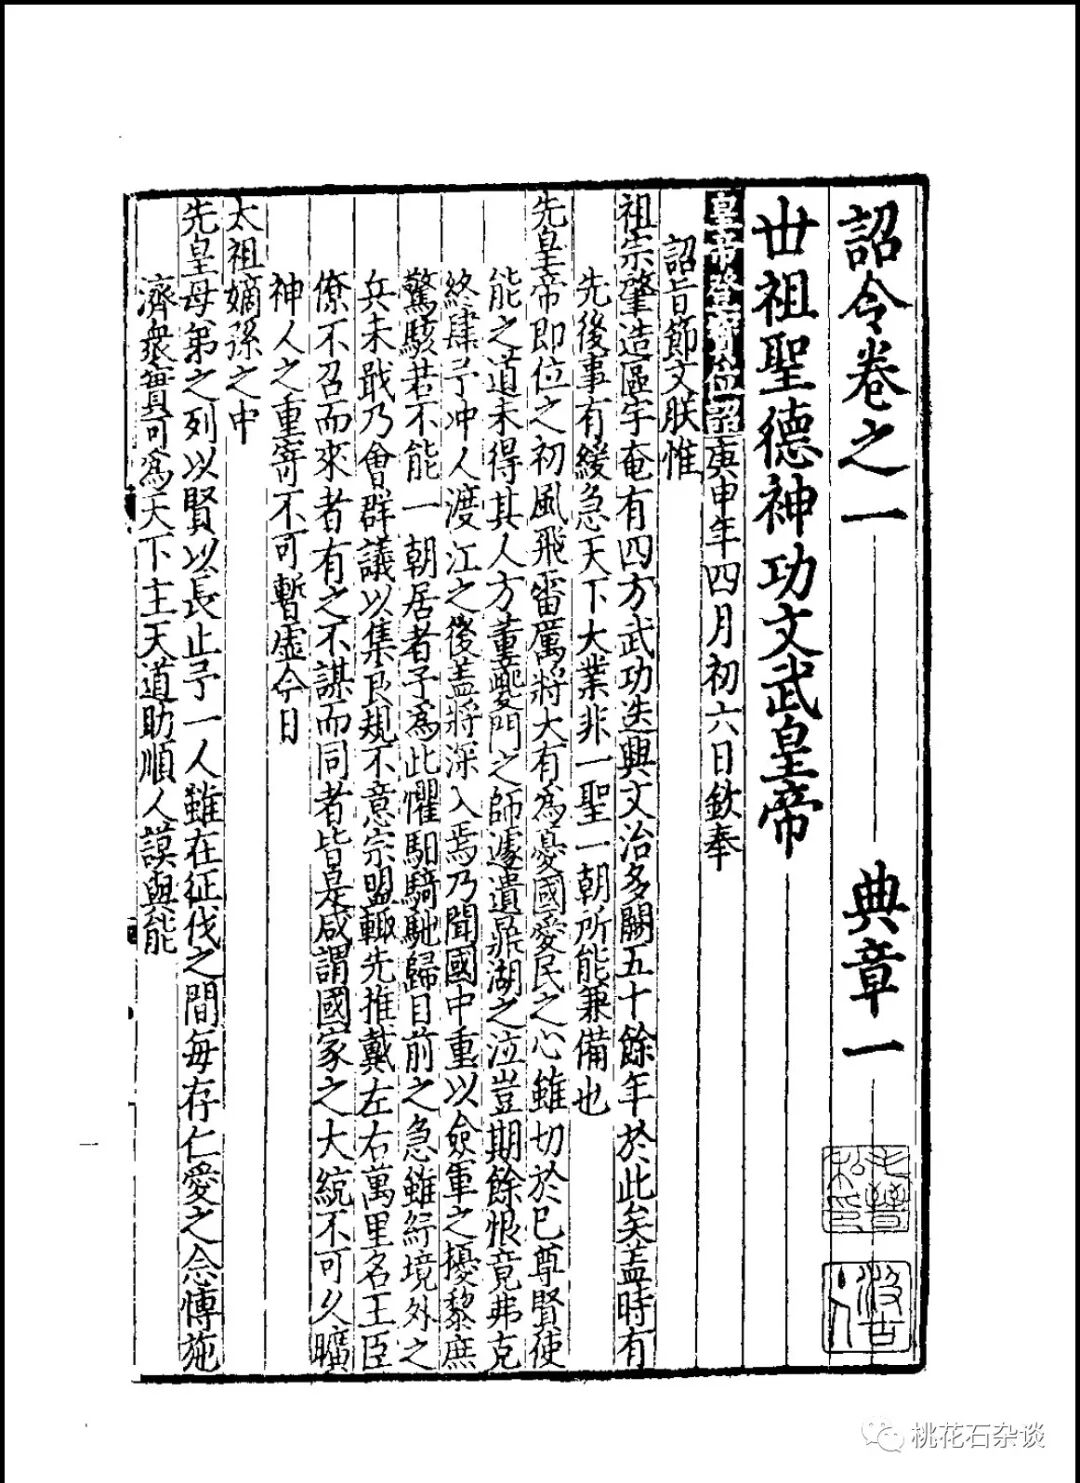 詔令卷之一 典章一
世祖聖德神功文武皇帝
皇帝登寶位詔庚申年四月初六日欽奉
詔旨節文朕惟
祖宗肇造區宇奄有四方武功迭興文治多闕五十餘年於此矣盖時有
先後事有緩急天下大業非一聖一朝所能兼備也
先皇帝即位之初風飛雷厲將大有為憂國愛民之心雖切於己尊賢使
能之道未得其人方董夔門之師遽遺鼎湖之泣豈期餘恨竟弗克
終肆予冲人渡江之後盖將深入焉乃聞國中重以僉軍之擾黎庶
驚駭若不能一朝居者予為此懼馹騎馳歸目前之急雖紓境外之
兵未戢乃會群議以集良規不意宗盟輒先推戴左右萬里名王臣
僚不召而來者有之不謀而同者皆是咸謂國家之大統不可久曠
神人之重寄不可暫虛今日
太祖嫡孫之中
先皇母弟之列以賢以長止予一人雖在征伐之間每存仁愛之念博施
濟衆實可為天下主天道助順人謨與能
毛晉
汲古
一
桃花石杂谈